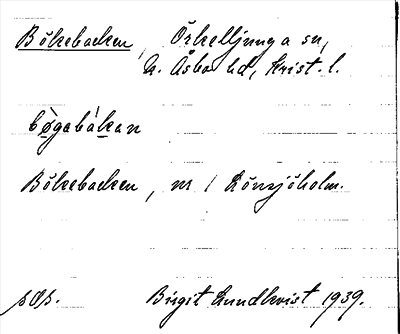 Bökebacken, Örkelljunga sn,
N. Åsbo hd, Krist. l.
bø̀gabákan
Bökebacken, nr 1 Lönsjöholm.
sOs.
Birgit Lundkvist 1939.